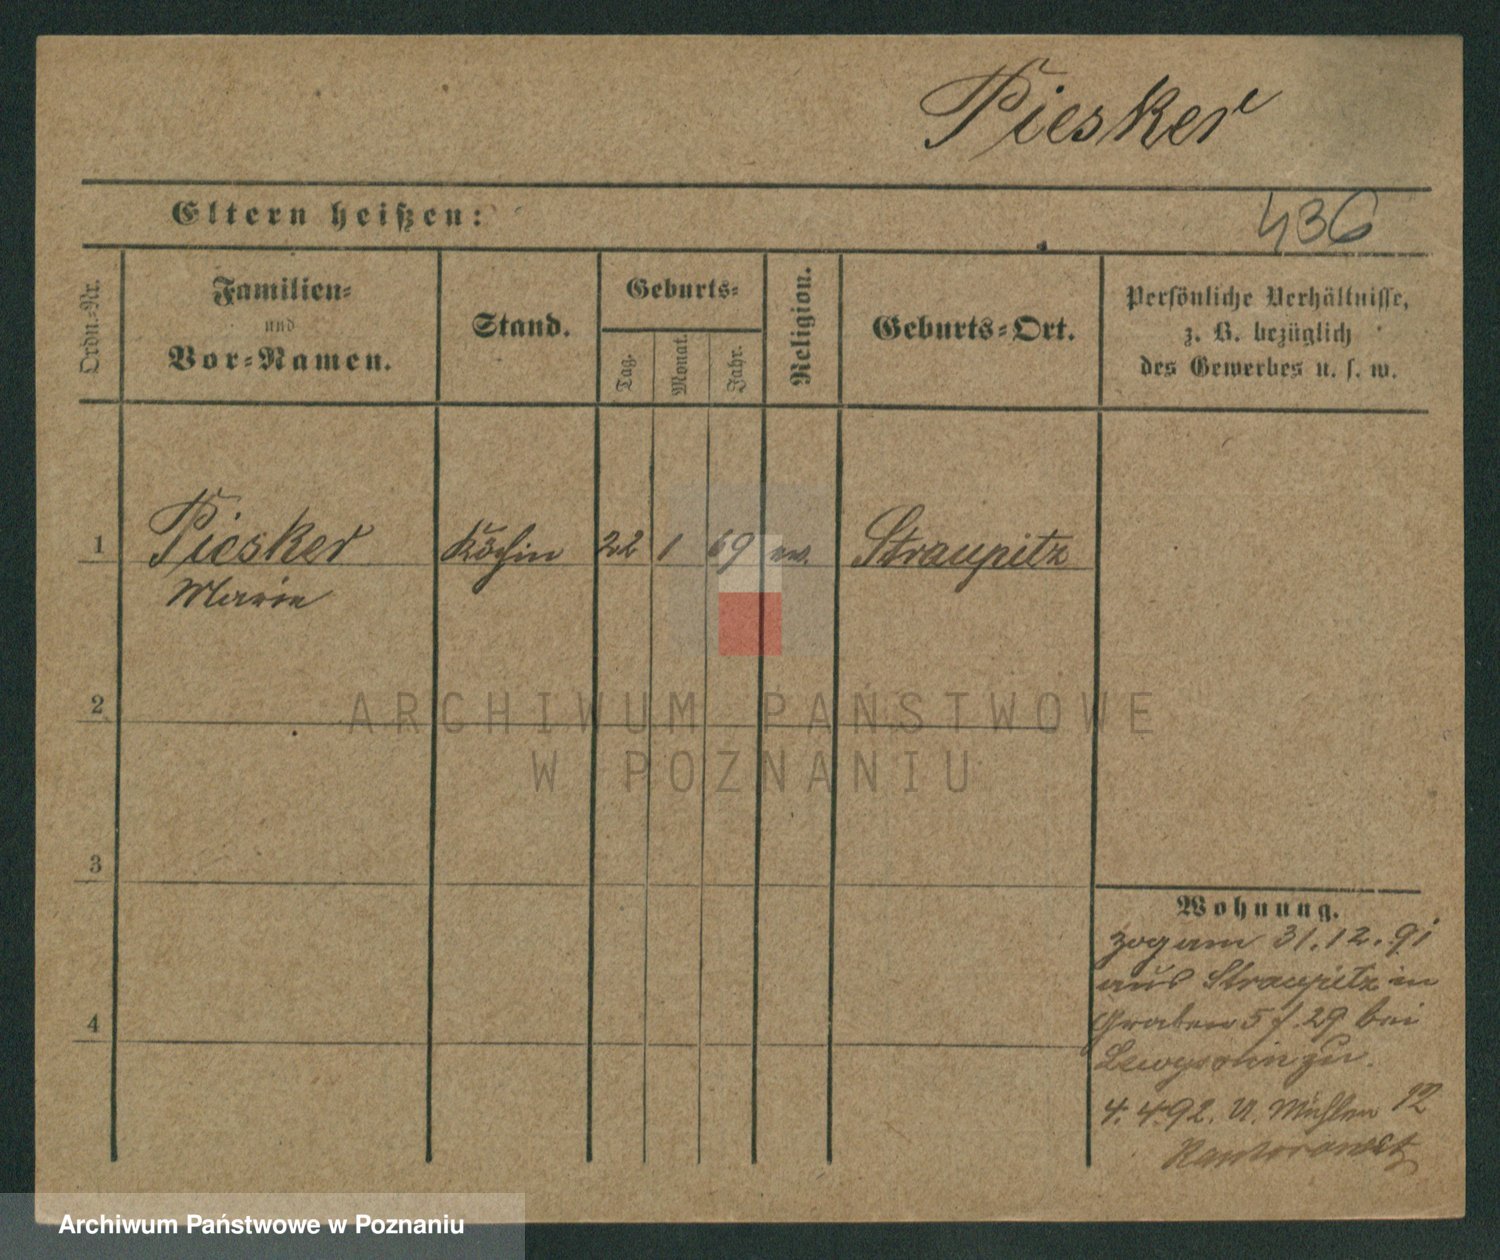 Piesker
Eltern heißen:
436
Ordn.-Nr.
Familien-
und
Vor-Namen.
Stand.
Geburts-
Tag.
Monat.
Jahr.
Religion.
Geburts-Ort.
Persönliche Verhältnisse,
z. B. bezüglich
des Gewerbes u. s. w.
1 Piesker Köchin 22 1 69 ev. Straupitz
Marie
2
3
4
Wohnung.
zog am 31.12.91
aus Straupitz in
Graben 5 f. 29 bei
zu.
4. 4. 92. U. Mühlen 12
ARCHIWUM PAŃSTWOWE
W POZNANIU
Archiwum Państwowe w Poznaniu